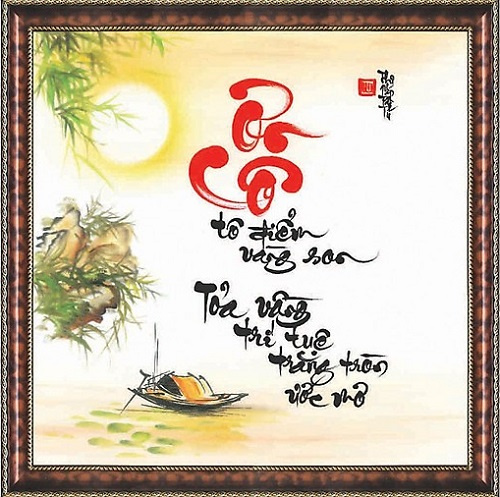 Ơn
Cô
tô điểm
vàng son
Tỏa vầng
trí tuệ
trăng tròn
ước mơ